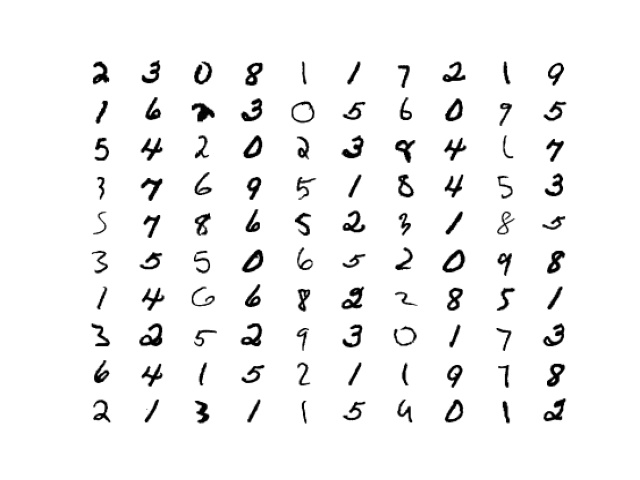 2 3 0 8 1 1 7 2 1 9
1 6 2 3 0 5 6 0 9 5
5 4 2 0 2 3 8 4 1 7
3 7 6 9 5 1 8 4 5 3
5 7 8 6 5 2 3 1 8 5
3 5 5 0 6 5 2 0 9 8
1 4 6 6 8 2 2 8 5 1
3 2 5 2 9 3 0 1 7 3
6 4 1 5 2 1 1 9 7 8
2 1 3 1 1 5 9 0 1 2